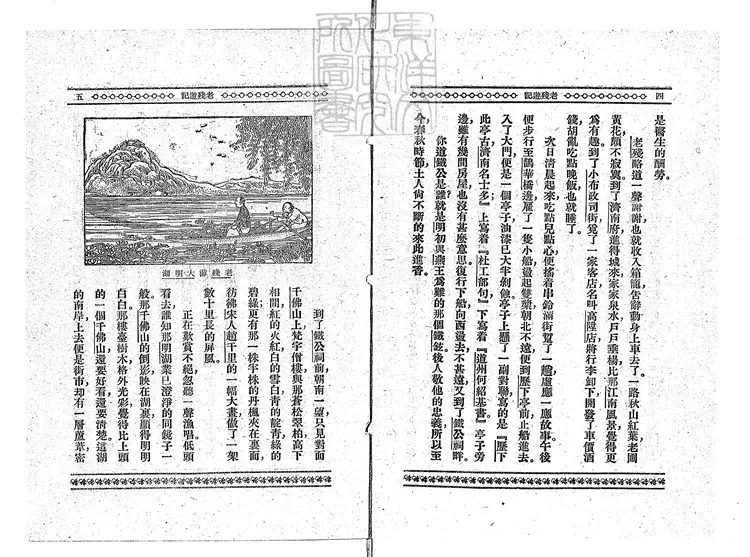 四
老殘遊記
是醫生的酬勞。
老殘略道一聲謝謝，也就收入箱籠，告辭動身上車去了。一路秋山紅葉，老圃
黃花，頗不寂寞。到了濟南府，進得城來，家家泉水，戶戶垂楊，比那江南風景，覺得更
爲有趣。到了小布政司街，覓了一家客店，名叫高陞店，將行李卸下，開發了車價酒
錢，胡亂吃點晚飯，也就睡了。
次日清晨起來，吃點兒點心，便搖着串鈴滿街踅了一趟，虛應一應故事。午後
便步行至鵲華橋邊，雇了一隻小船，盪起雙槳，朝北不遠，便到歷下亭前。止船進去，
入了大門，便是一個亭子，油漆已大半剝蝕。亭子上懸了一副對聯，寫的是『歷下
此亭古，濟南名士多』，上寫着『杜工部句』，下寫着『道州何紹基書』。亭子旁
邊雖有幾間房屋，也沒有甚麼意思。復行下船，向西盪去，不甚遠，又到了鐵公祠畔。
你道鐵公是誰？就是明初與燕王爲難的那個鐵鉉。後人敬他的忠義，所以至
今春秋時節，土人尚不斷的來此進香。
老殘遊記
五
老殘游大明湖
到了鐵公祠前，朝南一望，只見對面
千佛山上，梵宇僧樓，與那蒼松翠柏，高下
相間，紅的火紅，白的雪白，青的靛青，綠的
碧綠，更有那一株半株的丹楓夾在裏面，
彷彿宋人趙千里的一幅大畫，做了一架
數十里長的屏風。
正在歎賞不絕，忽聽一聲漁唱。低頭
看去，誰知那明湖業已澄淨的同鏡子一
般。那千佛山的倒影映在湖裏，顯得明明
白白。那樓臺樹木，格外光彩，覺得比上頭
的一個千佛山，還要好看，還要清楚。這湖
的南岸，上去便是街市，卻有一層蘆葦，密